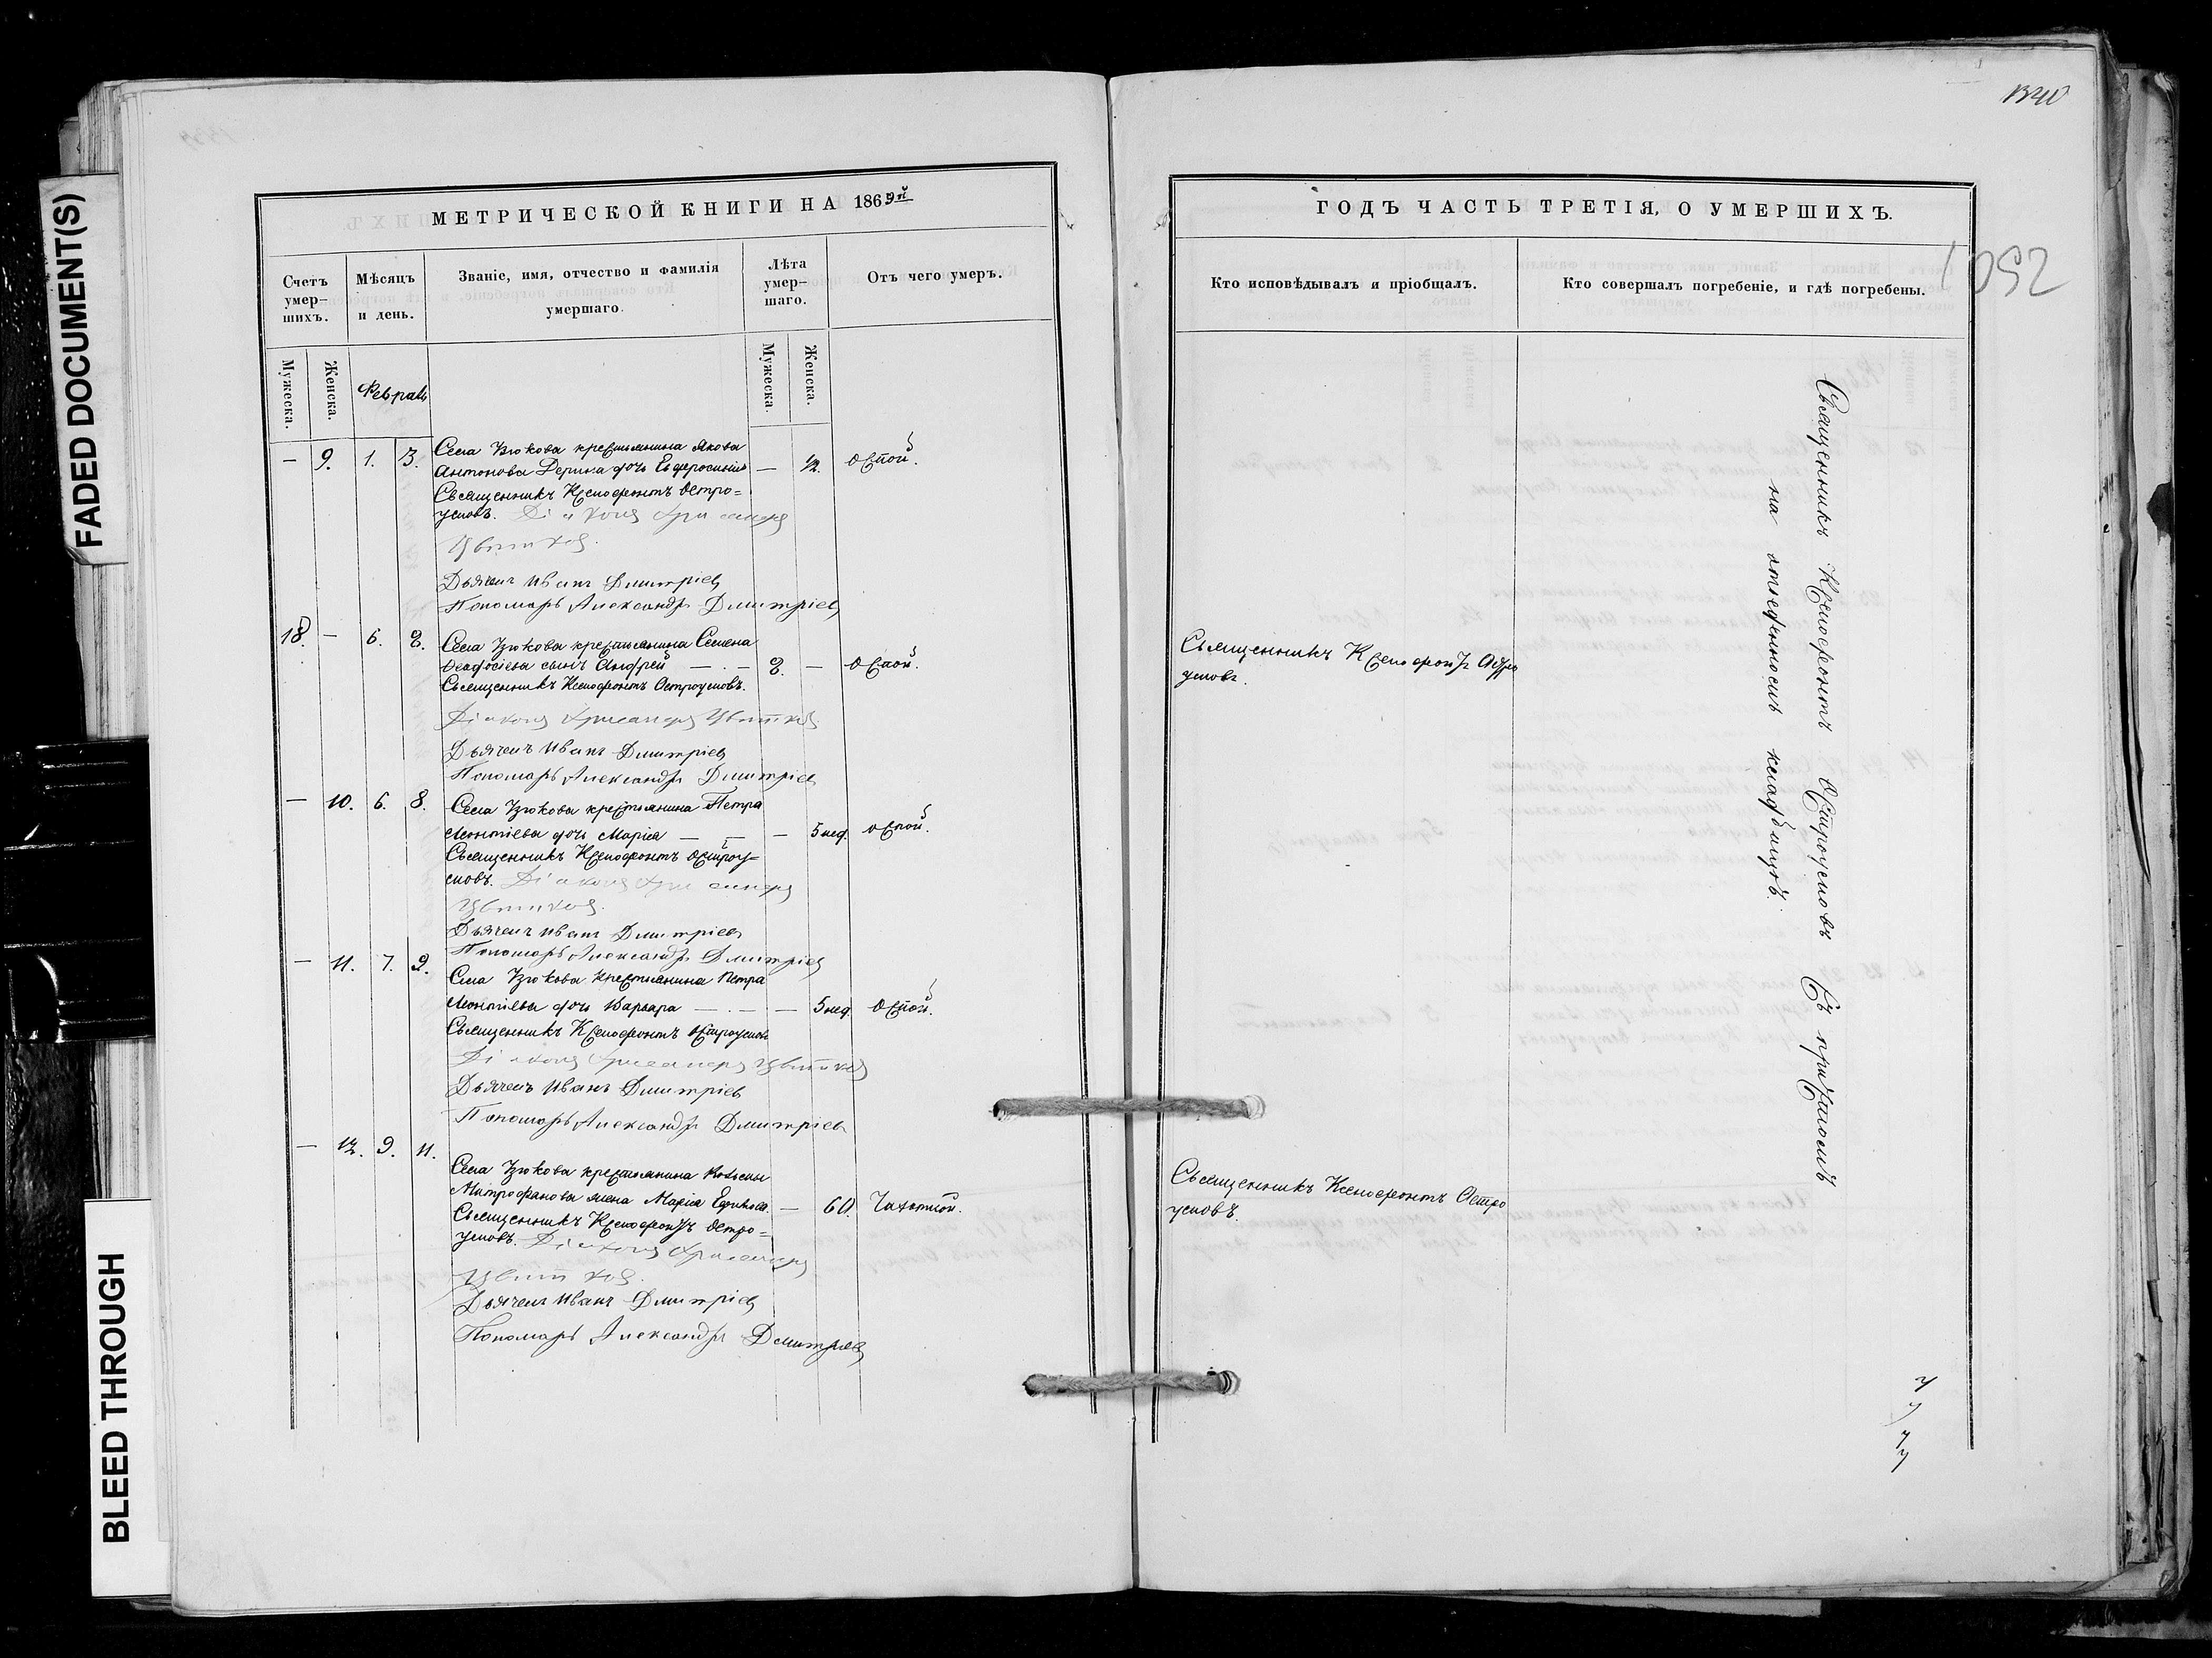 FADED DOCUMENT(S)
BLEED THROUGH
МЕТРИЧЕСКОЙ КНИГИ НА 1869й
Счетъ умер-шихъ.
Мѣсяцъ и день.
Званіе, имя, отчество и фамилія умершаго.
Лѣта умер-шаго.
Отъ чего умеръ.
Мужеска.
Женска.
Февраль
Мужеска.
Женска.
— 9. 1. 3. Села Зюкова крестьянина Якова
Антонова дочь Евфросинія — ½ оспой.
Священникъ Ксенофонтъ Остро=
умовъ. Діаконъ Хрисанфъ
Цвѣтковъ.
Дьячекъ Иванъ Дмитріевъ
Пономарь Александръ Дмитріевъ
18. — 6. Села Зюкова крестьянина Семена
Ѳеодосіева сынъ Андрей — . — 2. — оспой.
Священникъ Ксенофонтъ Остроумовъ.
Діаконъ Хрисанфъ Цвѣтковъ.
Дьячекъ Иванъ Дмитріевъ
Пономарь Александръ Дмитріевъ
— 10. 6. 8. Села Зюкова крестьянина Петра
Леонтіева дочь Марія — — — 5 нед. оспой.
Священникъ Ксенофонтъ Остроу=
мовъ. Діаконъ Хрисанфъ
Цвѣтковъ.
Дьячекъ Иванъ Дмитріевъ
Пономарь Александръ Дмитріевъ
— 11. 7. 9. Села Зюкова крестьянина Петра
Леонтіева дочь Варвара — . — — 5 нед. оспой.
Священникъ Ксенофонтъ Остроумовъ
Діаконъ Хрисанфъ Цвѣтковъ
Дьячекъ Иванъ Дмитріевъ
Пономарь Александръ Дмитріевъ
— 12. 9. 11.
Села Зюкова крестьянина
Митрофанова жена Марія — 60. Чахоткой.
Священникъ Ксенофонтъ Остро=
умовъ. Діаконъ Хрисанфъ
Цвѣтковъ.
Дьячекъ Иванъ Дмитріевъ
Пономарь Александръ Дмитріевъ
1340
ГОДЪ ЧАСТЬ ТРЕТІЯ, О УМЕРШИХЪ.
Кто исповѣдывалъ и пріобщалъ.
Кто совершалъ погребеніе, и гдѣ погребены.
Священникъ Ксенофонтъ Остро
умовъ.
Священникъ Ксенофонтъ Остро
умовъ.
Священникъ Ксенофонтъ Остроумовъ Съ причтомъ
на отведенномъ кладбищѣ.